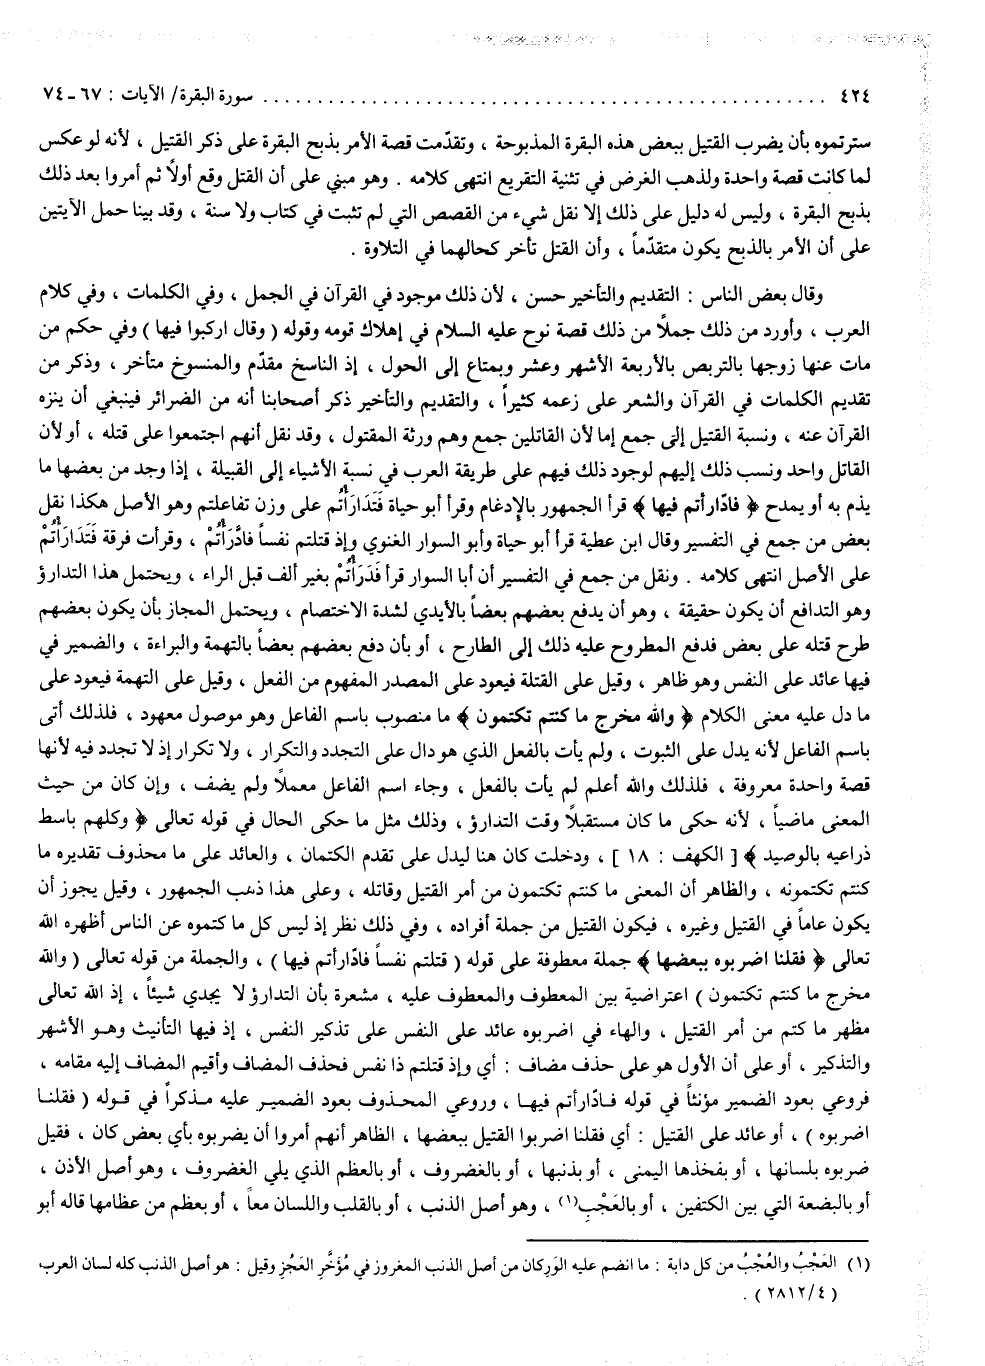 ٤٢٤ ........................................ سورة البقرة/ الآيات : ٦٧ ـ ٧٤
سترتموه بأن يضرب القتيل ببعض هذه البقرة المذبوحة ، وتقدّمت قصة الأمر بذبح البقرة على ذكر القتيل ، لأنه لو عكس
لما كانت قصة واحدة ولذهب الغرض في تثنية التقريع انتهى كلامه . وهو مبني على أن القتل وقع أولاً ثم أمروا بعد ذلك
بذبح البقرة ، وليس له دليل على ذلك إلا نقل شيء من القصص التي لم تثبت في كتاب ولا سنة ، وقد بينا حمل الآيتين
على أن الأمر بالذبح يكون متقدّماً ، وأن القتل تأخر كحالهما في التلاوة .
وقال بعض الناس : التقديم والتأخير حسن ، لأن ذلك موجود في القرآن في الجمل ، وفي الكلمات ، وفي كلام
العرب ، وأورد من ذلك جملاً من ذلك قصة نوح عليه السلام في إهلاك قومه وقوله ( وقال اركبوا فيها ) وفي حكم من
مات عنها زوجها بالتربص بالأربعة الأشهر وعشر وبمتاع إلى الحول ، إذ الناسخ مقدّم والمنسوخ متأخر ، وذكر من
تقديم الكلمات في القرآن والشعر على زعمه كثيراً ، والتقديم والتأخير ذكر أصحابنا أنه من الضرائر فينبغي أن ينزه
القرآن عنه ، ونسبة القتيل إلى جمع إما لأن القاتلين جمع وهم ورثة المقتول ، وقد نقل أنهم اجتمعوا على قتله ، أو لأن
القاتل واحد ونسب ذلك إليهم لوجود ذلك فيهم على طريقة العرب في نسبة الأشياء إلى القبيلة ، إذا وجد من بعضها ما
يذم به أو يمدح ﴿ فادّارأتم فيها ﴾ قرأ الجمهور بالإدغام وقرأ أبو حياة فَتَدَارَأْتُم على وزن تفاعلتم وهو الأصل هكذا نقل
بعض من جمع في التفسير وقال ابن عطية قرأ أبو حياة وأبو السوار الغنوي وإذ قتلتم نفساً فادَّرَأْتُمْ ، وقرأت فرقة فَتَدَارَأْتُمْ
على الأصل انتهى كلامه . ونقل من جمع في التفسير أن أبا السوار قرأ فَدَرَأْتُمْ بغير ألف قبل الراء ، ويحتمل هذا التدارؤ
وهو التدافع أن يكون حقيقة ، وهو أن يدفع بعضهم بعضاً بالأيدي لشدة الاختصام ، ويحتمل المجاز بأن يكون بعضهم
طرح قتله على بعض فدفع المطروح عليه ذلك إلى الطارح ، أو بأن دفع بعضهم بعضاً بالتهمة والبراءة ، والضمير في
فيها عائد على النفس وهو ظاهر ، وقيل على القتلة فيعود على المصدر المفهوم من الفعل ، وقيل على التهمة فيعود على
ما دل عليه معنى الكلام ﴿ والله مخرج ما كنتم تكتمون ﴾ ما منصوب باسم الفاعل وهو موصول معهود ، فلذلك أتى
باسم الفاعل لأنه يدل على الثبوت ، ولم يأت بالفعل الذي هو دال على التجدد والتكرار ، ولا تكرار إذ لا تجدد فيه لأنها
قصة واحدة معروفة ، فلذلك والله أعلم لم يأت بالفعل ، وجاء اسم الفاعل معملاً ولم يضف ، وإن كان من حيث
المعنى ماضياً ، لأنه حكى ما كان مستقبلاً وقت التدارؤ ، وذلك مثل ما حكى الحال في قوله تعالى ﴿ وكلهم باسط
ذراعيه بالوصيد ﴾ [ الكهف : ١٨ ] ، ودخلت كان هنا ليدل على تقدم الكتمان ، والعائد على ما محذوف تقديره ما
كنتم تكتمونه ، والظاهر أن المعنى ما كنتم تكتمون من أمر القتيل وقاتله ، وعلى هذا ذهب الجمهور ، وقيل يجوز أن
يكون عاماً في القتيل وغيره ، فيكون القتيل من جملة أفراده ، وفي ذلك نظر إذ ليس كل ما كتموه عن الناس أظهره الله
تعالى ﴿ فقلنا اضربوه ببعضها ﴾ جملة معطوفة على قوله ( قتلتم نفساً فادّارأتم فيها ) ، والجملة من قوله تعالى ( والله
مخرج ما كنتم تكتمون ) اعتراضية بين المعطوف والمعطوف عليه ، مشعرة بأن التدارؤ لا يجدي شيئاً ، إذ الله تعالى
مظهر ما كتم من أمر القتيل ، والهاء في اضربوه عائد على النفس على تذكير النفس ، إذ فيها التأنيث وهـو الأشهر
والتذكير ، أو على أن الأول هو على حذف مضاف : أي وإذ قتلتم ذا نفس فحذف المضاف وأقيم المضاف إليه مقامه ،
فروعي بعود الضمير مؤنثاً في قوله فـادّارأتم فيهـا ، وروعي المحـذوف بعود الضميـر عليه مـذكراً في قـوله ( فقلنـا
اضربوه ) ، أو عائد على القتيل : أي فقلنا اضربوا القتيل ببعضها ، الظاهر أنهم أمروا أن يضربوه بأي بعض كان ، فقيل
ضربوه بلسانها ، أو بفخذها اليمنى ، أو بذنبها ، أو بالغضروف ، أو بالعظم الذي يلي الغضروف ، وهو أصل الأذن ،
أو بالبضعة التي بين الكتفين ، أو بالعَجْبِ(١) ، وهو أصل الذنب ، أو بالقلب واللسان معاً ، أو بعظم من عظامها قاله أبو
(١) العَجْبُ والعُجْبُ من كل دابة : ما انضم عليه الوَرِكان من أصل الذنب المغروز في مُؤَخَّرِ العَجُزِ وقيل : هو أصل الذنب كله لسان العرب
( ٢٨١٢/٤ ) .